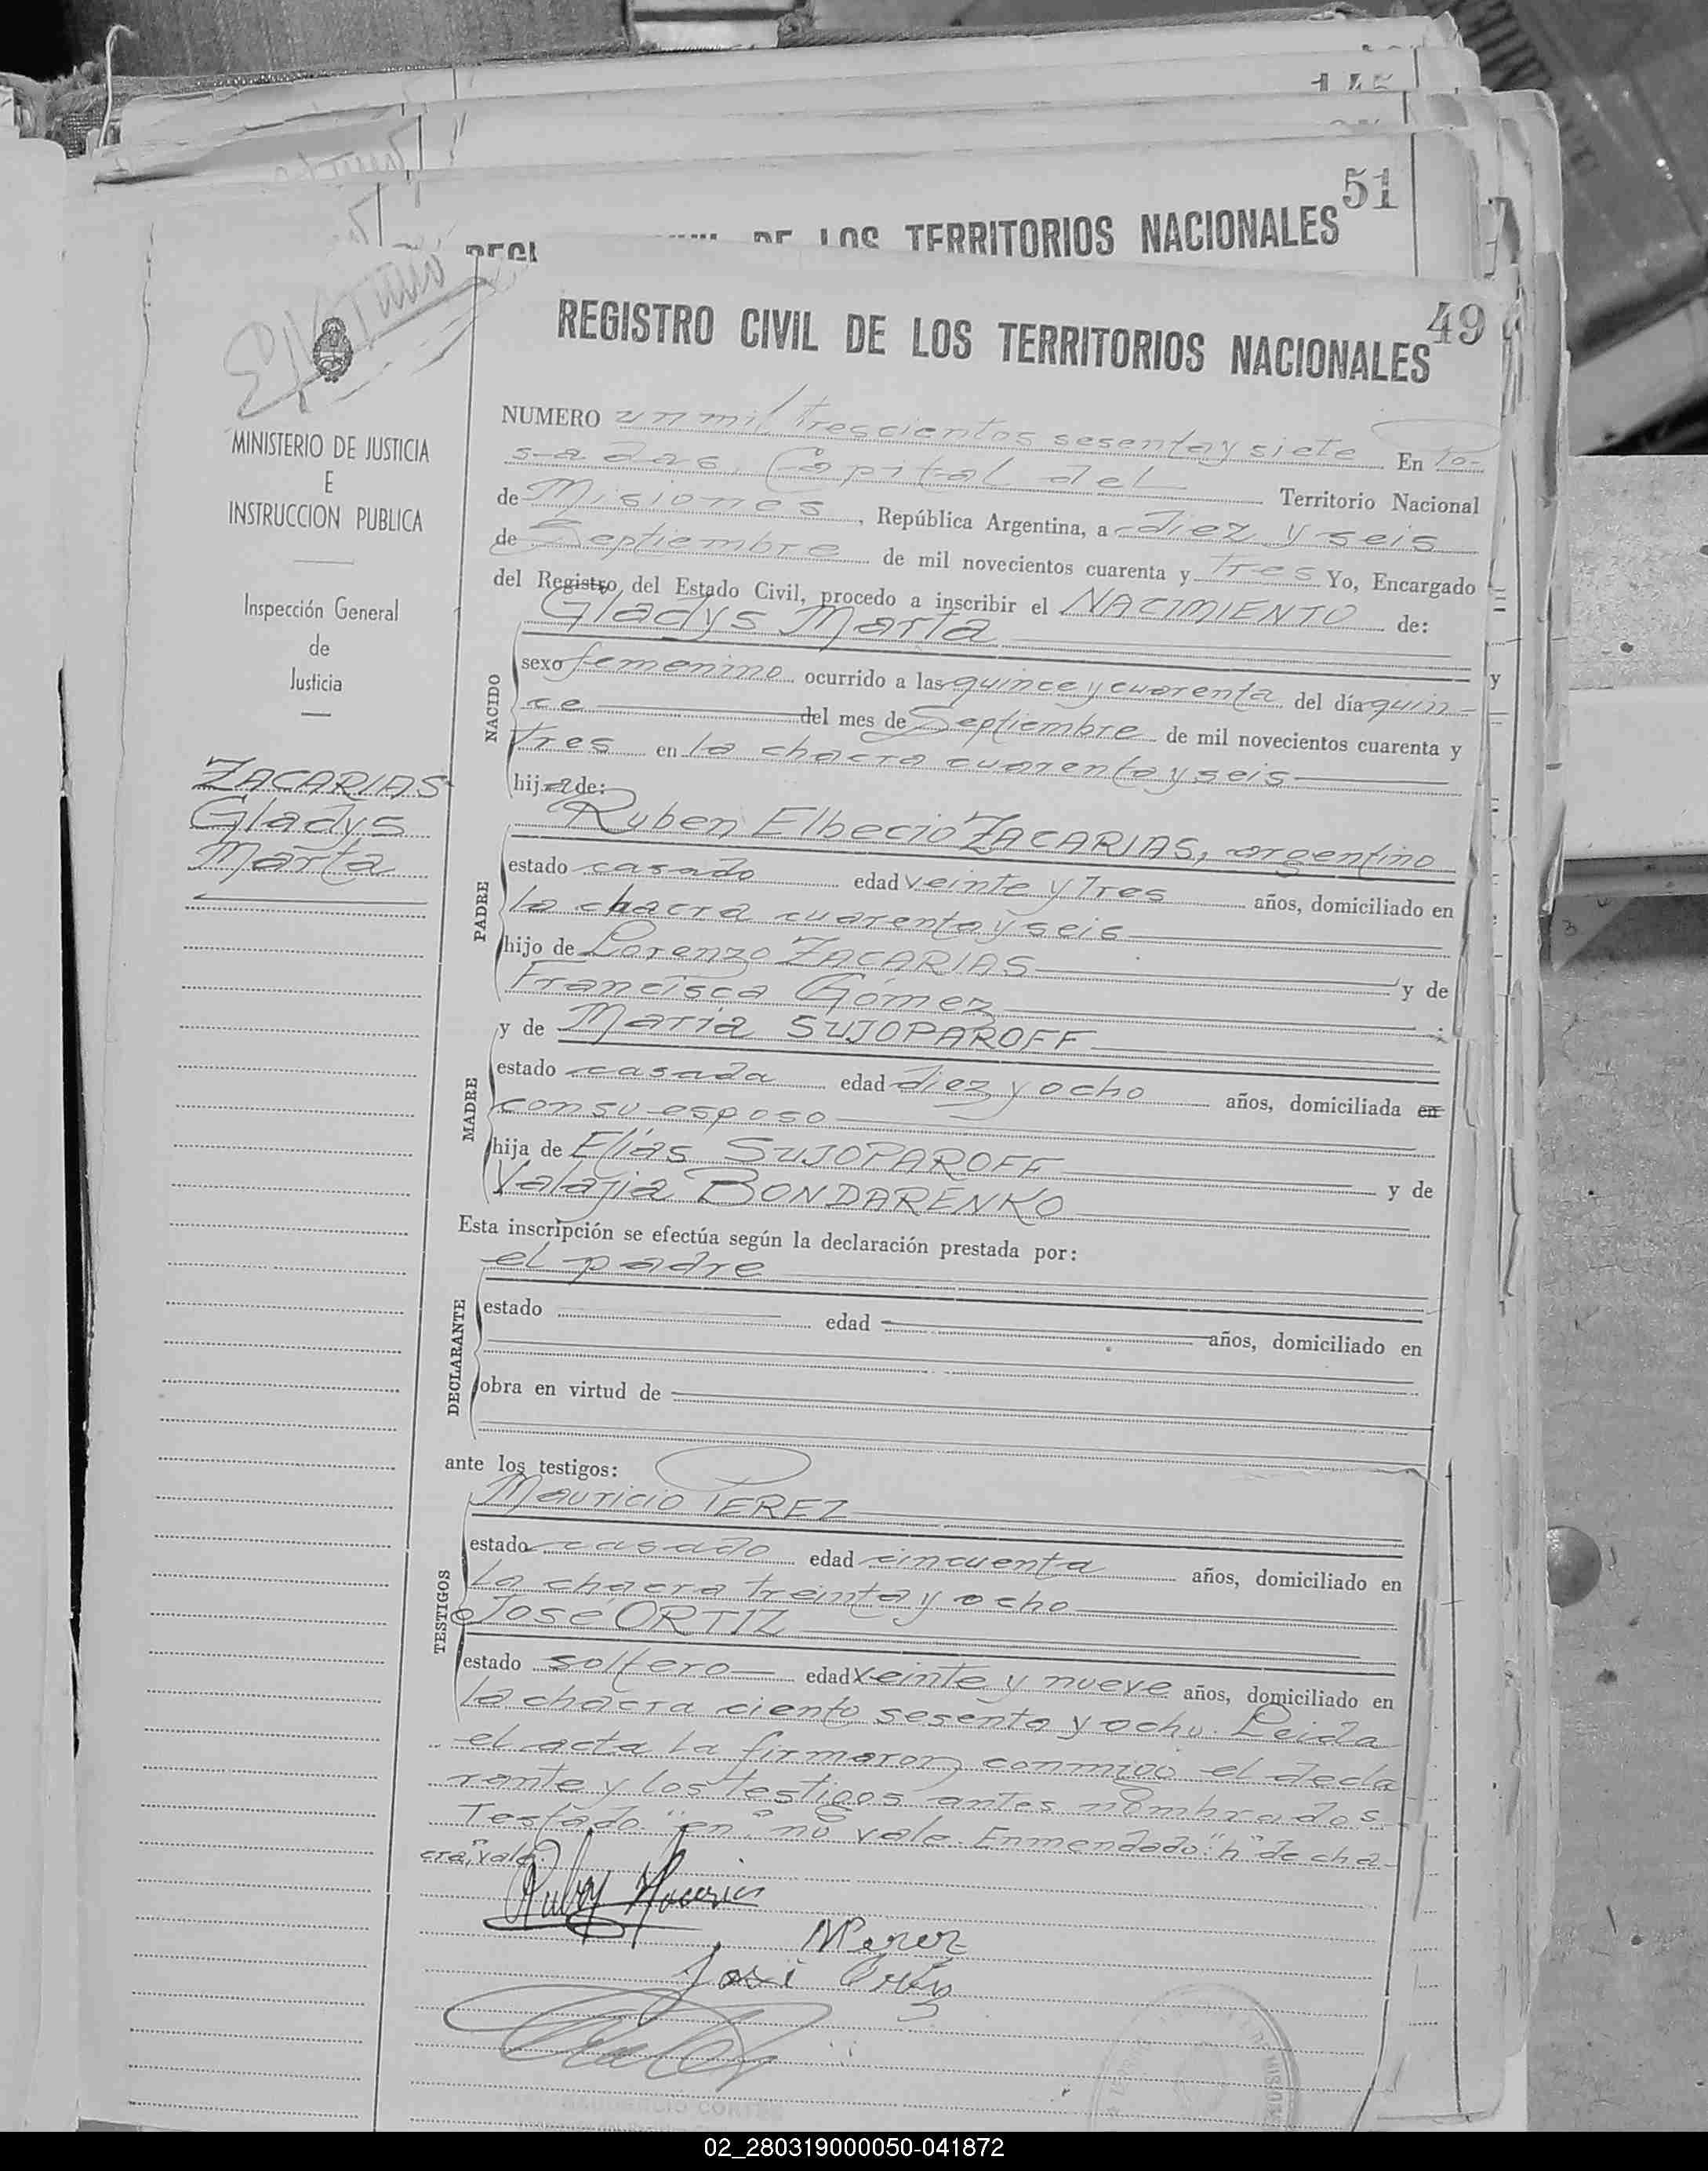 51
DE LOS TERRITORIOS NACIONALES
49
REGISTRO CIVIL DE LOS TERRITORIOS NACIONALES
MINISTERIO DE JUSTICIA
E
INSTRUCCION PUBLICA
Inspección General
de
Justicia
ZACARIAS
Gladys
Marta
NUMERO un mil trescientos sesenta y siete En Po-
sadas, Capital del Territorio Nacional
de Misiones, República Argentina, a diez y seis
de Septiembre de mil novecientos cuarenta y tres Yo, Encargado
del Registro del Estado Civil, procedo a inscribir el NACIMIENTO de:
Gladys Marta
NACIDO
sexo femenino ocurrido a las quince y cuarenta del día quin-
ce del mes de Septiembre de mil novecientos cuarenta y
tres en la chacra cuarenta y seis
hija de:
Ruben Elbecio ZACARIAS, argentino
PADRE
estado casado edad veinte y tres años, domiciliado en
la chacra cuarenta y seis
hijo de Lorenzo ZACARIAS y de
Francisca Gómez
y de Maria SUJOPAROFF
MADRE
estado casada edad diez y ocho años, domiciliada en
con su esposo
hija de Elías SUJOPAROFF y de
Valajia BONDARENKO
Esta inscripción se efectúa según la declaración prestada por:
el padre
DECLARANTE
estado edad años, domiciliado en
obra en virtud de
ante los testigos:
Mauricio PEREZ
TESTIGOS
estado casado edad cincuenta años, domiciliado en
la chacra treinta y ocho
José ORTIZ
estado soltero edad veinte y nueve años, domiciliado en
la chacra ciento sesenta y ocho. Leida
el acta la firmaron conmigo el decla
rante y los testigos antes nombrados.
Testado "en" no vale. Enmendado: "h" de cha-
cra, vale.
M Perez
José Ortiz
02_280319000050-041872